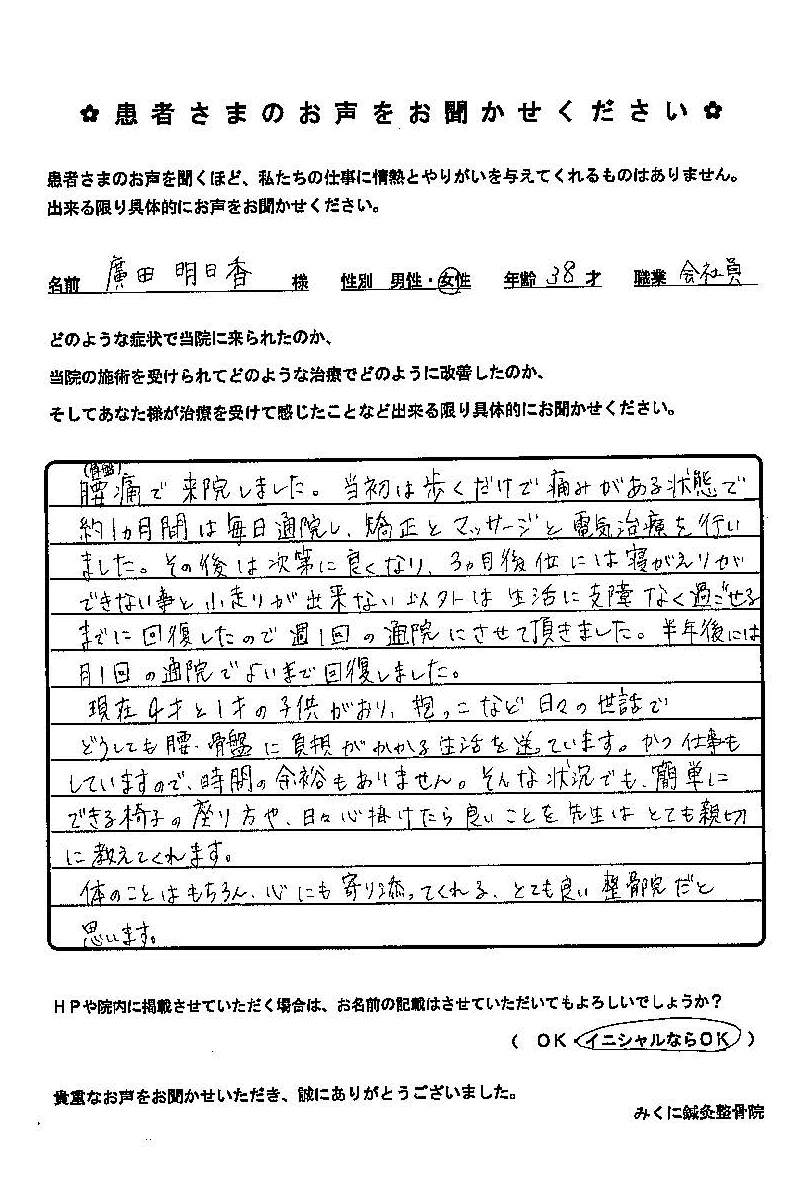 ✿患者さまのお声をお聞かせください✿
患者さまのお声を聞くほど、私たちの仕事に情熱とやりがいを与えてくれるものはありません。
出来る限り具体的にお声をお聞かせください。
名前 廣田 明日香 様 性別 男性・女性 年齢 38 才 職業 会社員
どのような症状で当院に来られたのか、
当院の施術を受けられてどのような治療でどのように改善したのか、
そしてあなた様が治療を受けて感じたことなど出来る限り具体的にお聞かせください。
(骨盤)
腰痛で来院しました。当初は歩くだけで痛みがある状態で
約1ヵ月間は毎日通院し、矯正とマッサージと電気治療を行い
ました。その後は次第に良くなり、3ヵ月後位には寝がえりが
できない事と小走りが出来ない以外は生活に支障なく過ごせる
までに回復したので週1回の通院にさせて頂きました。半年後には
月1回の通院でよいまで回復しました。
現在4才と1才の子供がおり、抱っこなど日々の世話で
どうしても腰・骨盤に負担がかかる生活を送っています。かつ仕事も
していますので、時間の余裕もありません。そんな状況でも、簡単に
できる椅子の座り方や、日々心掛けたら良いことを先生はとても親切
に教えてくれます。
体のことはもちろん、心にも寄り添ってくれる、とても良い整骨院だと
思います。
HPや院内に掲載させていただく場合は、お名前の記載はさせていただいてもよろしいでしょうか?
( OK・イニシャルならOK )
貴重なお声をお聞かせいただき、誠にありがとうございました。
みくに鍼灸整骨院